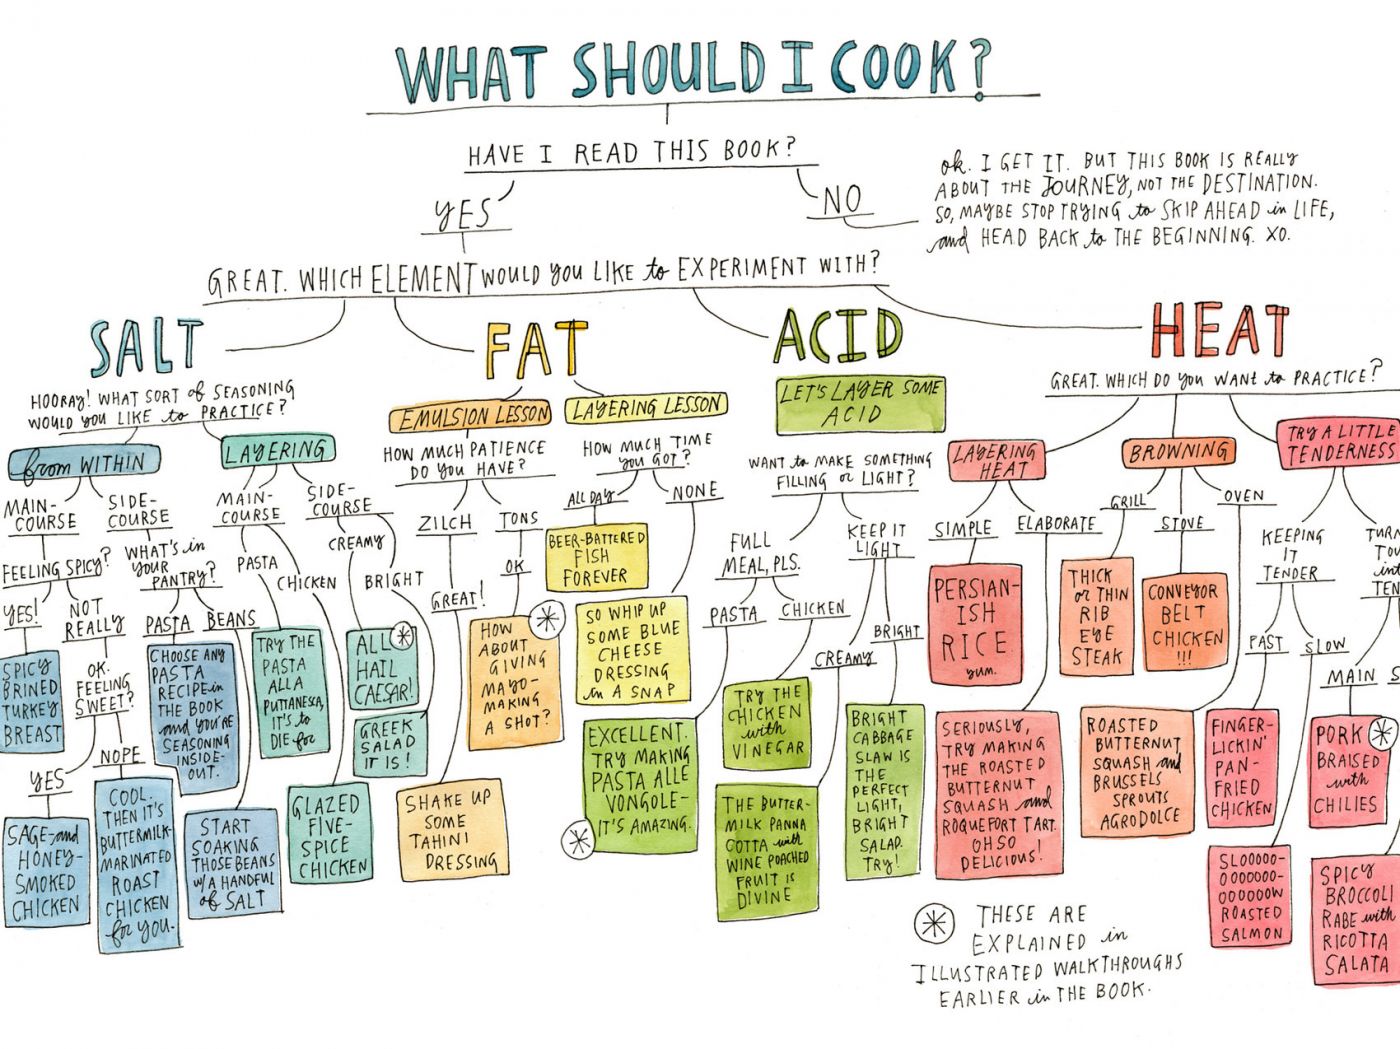 WHAT SHOULD I COOK?
HAVE I READ THIS BOOK?
YES
NO
OK. I GET IT. BUT THIS BOOK IS REALLY
ABOUT THE JOURNEY, NOT THE DESTINATION.
SO, MAYBE STOP TRYING to SKIP AHEAD in LIFE,
and HEAD BACK to THE BEGINNING. XO.
GREAT. WHICH ELEMENT WOULD YOU LIKE to EXPERIMENT WITH?
SALT
HOORAY! WHAT SORT of SEASONING
WOULD YOU LIKE to PRACTICE?
from WITHIN
MAIN-
COURSE
FEELING SPICY?
YES!
SPICY
BRINED
TURKEY
BREAST
NOT
REALLY
OK.
FEELING
SWEET?
YES
SAGE-and
HONEY-
SMOKED
CHICKEN
NOPE
COOL.
THEN IT'S
BUTTERMILK-
MARINATED
ROAST
CHICKEN
for YOU.
SIDE-
COURSE
WHAT'S in
YOUR
PANTRY?
PASTA
CHOOSE ANY
PASTA
RECIPE in
THE BOOK
and YOU'RE
SEASONING
INSIDE-
OUT.
BEANS
START
SOAKING
THOSE BEANS
W/ A HANDFUL
of SALT
LAYERING
MAIN-
COURSE
PASTA
TRY THE
PASTA
ALLA
PUTTANESCA,
IT'S to
DIE for
CHICKEN
GLAZED
FIVE-
SPICE
CHICKEN
SIDE-
COURSE
CREAMY
ALL
HAIL
CAESAR!
BRIGHT
GREEK
SALAD
IT IS!
FAT
EMULSION LESSON
HOW MUCH PATIENCE
DO YOU HAVE?
ZILCH
GREAT!
SHAKE UP
SOME
TAHINI
DRESSING
TONS
OK
HOW
ABOUT
GIVING
MAYO-
MAKING
A SHOT?
LAYERING LESSON
HOW MUCH TIME
YOU GOT?
ALL DAY
BEER-BATTERED
FISH
FOREVER
NONE
SO WHIP UP
SOME BLUE
CHEESE
DRESSING
in A SNAP
ACID
LET'S LAYER SOME
ACID
WANT to MAKE SOMETHING
FILLING or LIGHT?
FULL
MEAL, PLS.
PASTA
EXCELLENT.
TRY MAKING
PASTA ALLE
VONGOLE-
IT'S AMAZING.
CHICKEN
TRY THE
CHICKEN
with
VINEGAR
KEEP IT
LIGHT
CREAMY
THE BUTTER-
MILK PANNA
COTTA with
WINE POACHED
FRUIT IS
DIVINE
BRIGHT
BRIGHT
CABBAGE
SLAW IS
THE
PERFECT
LIGHT,
BRIGHT
SALAD.
TRY!
HEAT
GREAT. WHICH DO YOU WANT to PRACTICE?
LAYERING
HEAT
SIMPLE
PERSIAN-
ISH
RICE
YUM.
ELABORATE
SERIOUSLY,
TRY MAKING
THE ROASTED
BUTTERNUT
SQUASH and
ROQUEFORT TART.
OH SO
DELICIOUS!
BROWNING
GRILL
THICK
or THIN
RIB
EYE
STEAK
STOVE
CONVEYOR
BELT
CHICKEN
!!!
OVEN
ROASTED
BUTTERNUT
SQUASH and
BRUSSELS
SPROUTS
AGRODOLCE
TRY A LITTLE
TENDERNESS
KEEPING
IT
TENDER
FAST
FINGER-
LICKIN'
PAN-
FRIED
CHICKEN
SLOW
SLOOOOO-
OOOOOOO-
OOOOOOW
ROASTED
SALMON
TURN
TOU
int
TEN
MAIN S
PORK
BRAISED
with
CHILIES
SPICY
BROCCOLI
RABE with
RICOTTA
SALATA
THESE ARE
EXPLAINED in
ILLUSTRATED WALKTHROUGHS
EARLIER in THE BOOK.